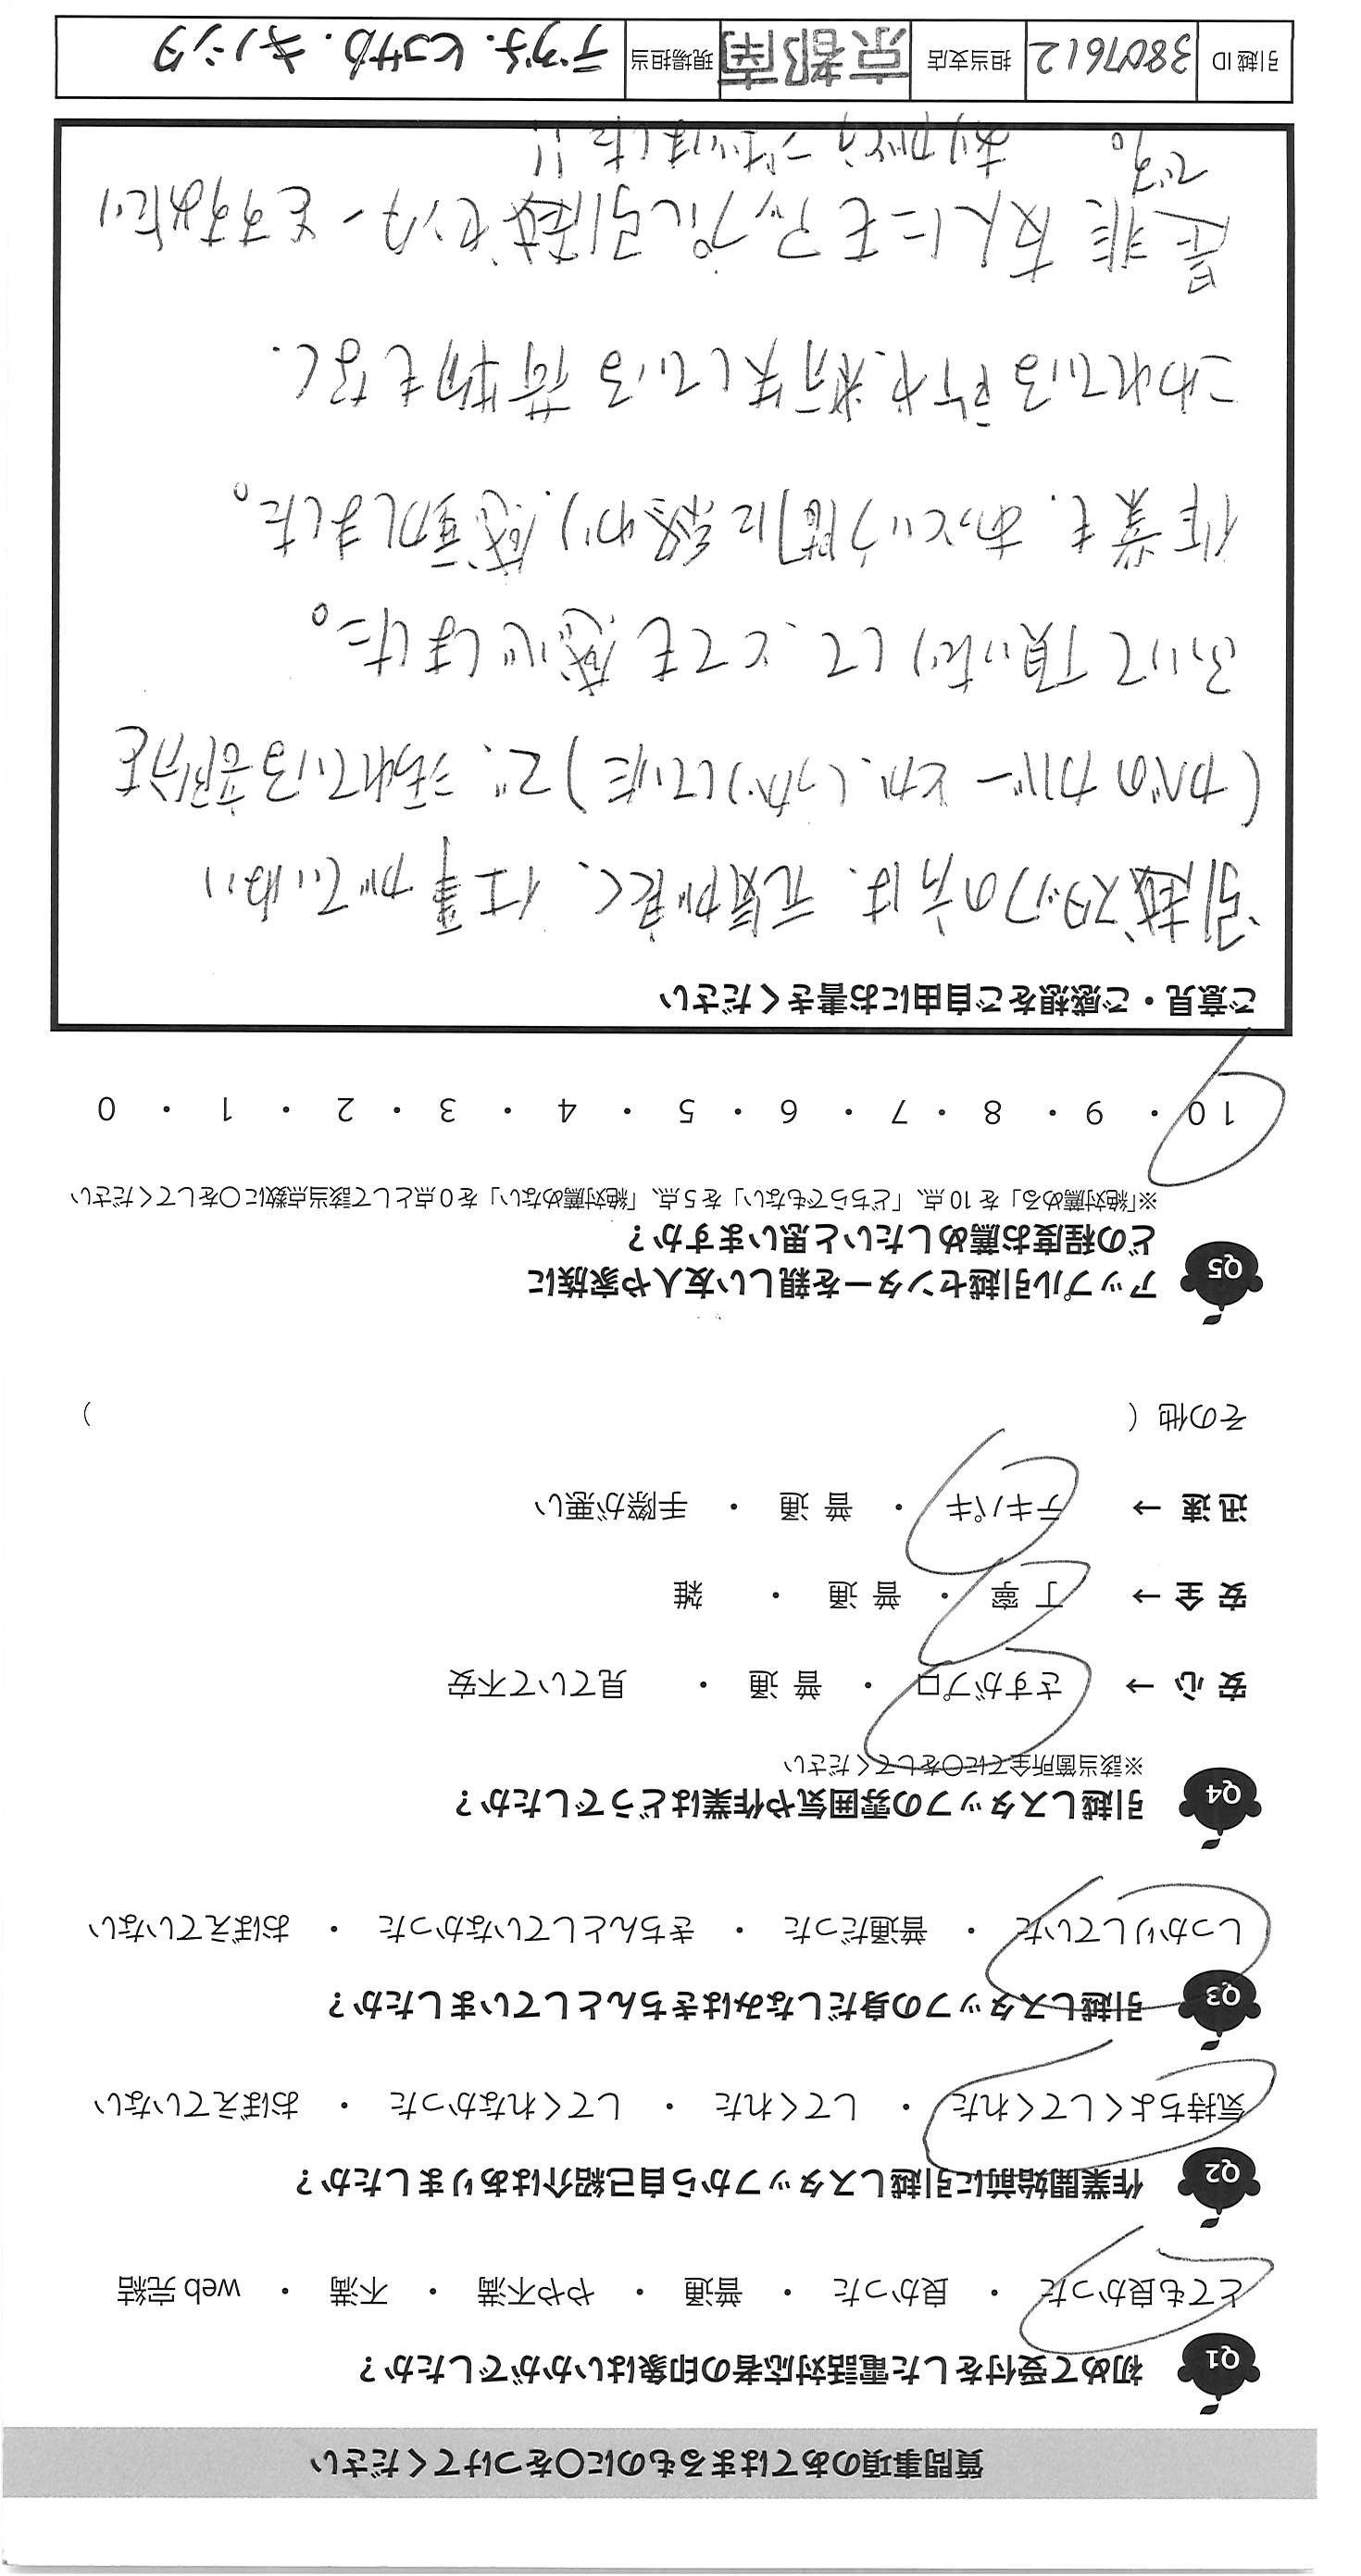 質問事項のあてはまるものに〇をつけてください
Q1 初めて受付をした電話対応者の印象はいかがでしたか？
とても良かった ・ 良かった ・ 普通 ・ やや不満 ・ 不満 ・ web 完結
Q2 作業開始前に引越しスタッフから自己紹介はありましたか？
気持ちよくしてくれた ・ してくれた ・ してくれなかった ・ おぼえていない
Q3 引越しスタッフの身だしなみはきちんとしていましたか？
しっかりしていた ・ 普通だった ・ きちんとしていなかった ・ おぼえていない
Q4 引越しスタッフの雰囲気や作業はどうでしたか？
※該当箇所全てに〇をしてください
安 心 → さすがプロ ・ 普 通 ・ 見ていて不安
安 全 → 丁 寧 ・ 普 通 ・ 雑
迅 速 → テキパキ ・ 普 通 ・ 手際が悪い
その他（ ）
Q5 アップル引越センターを親しい友人や家族に
どの程度お薦めしたいと思いますか？
※「絶対薦める」を 10 点、「どちらでもない」を 5 点、「絶対薦めない」を 0 点として該当点数に〇をしてください
10 ・ 9 ・ 8 ・ 7 ・ 6 ・ 5 ・ 4 ・ 3 ・ 2 ・ 1 ・ 0
ご意見・ご感想をご自由にお書きください
引越スタッフの方は、元気が良く、仕事がていねい
(かべのカバーとか、しっかりしていた)で、汚れている部分を
ふいて頂いたりして、とても感心しました。
作業も、あっという間に終わり、感動しました。
こわれている所や、紛失している荷物もなく、
是非友人にもアップル引越センターをすすめたい
です。 ありがとうございました!!
引越 ID 3807612 担当支店 京都南 現場担当 デグチ．ヒコサカ．キノシタ